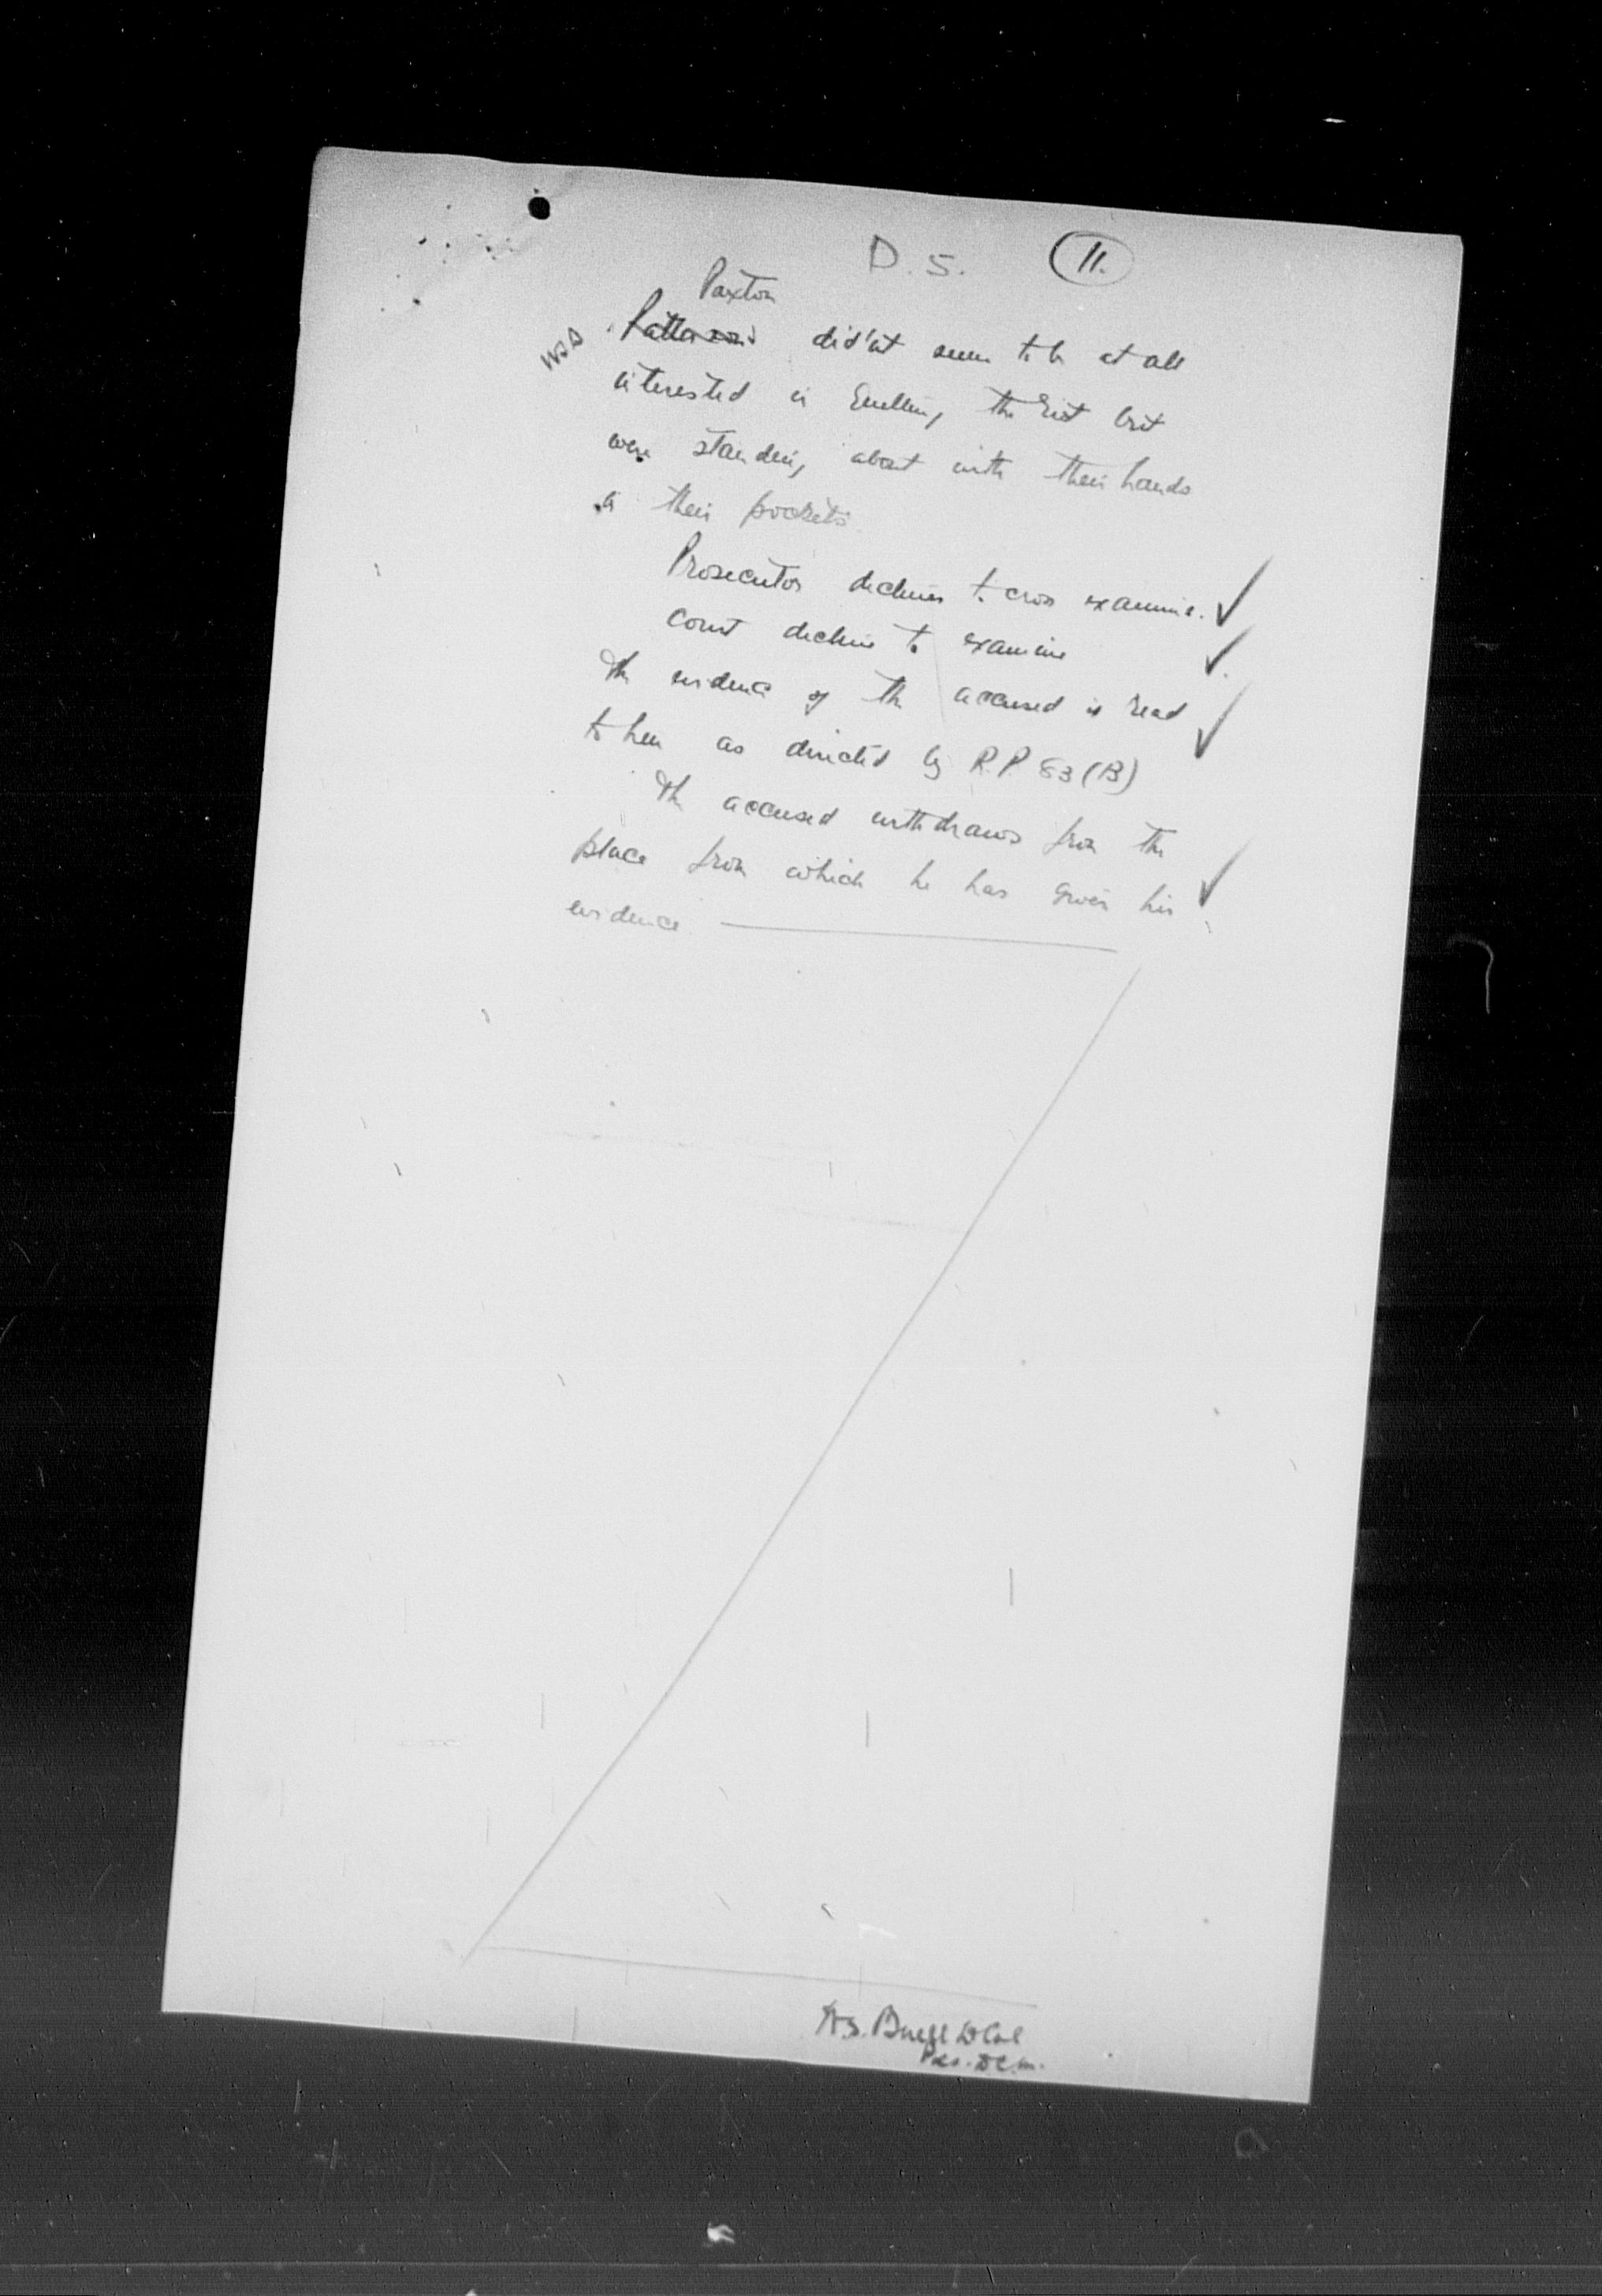 D. 5. 11.
Paxton
did'nt seem to be at all
interested in Quelling the riot but
were standing about with their hands
in their pockets
Prosecutor declines to cross examine.
Court decline to examine
The evidence of the accused is read
to him as directed by R.P. 83 (B)
The accused withdraws from the
place from which he has given his
evidence